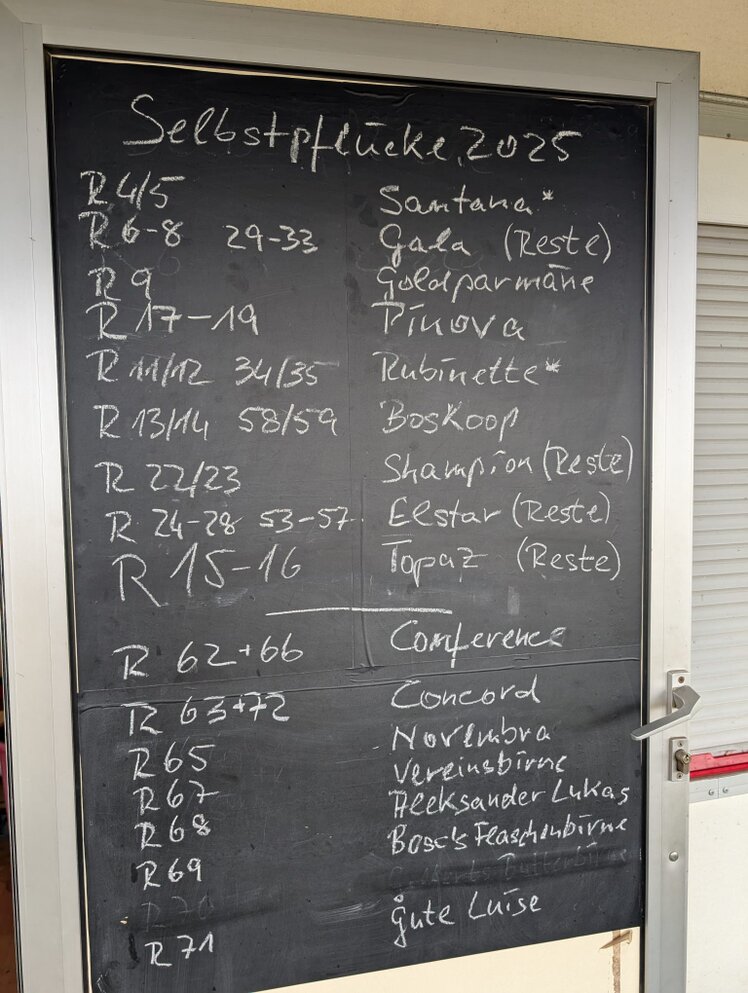 Selbstpflücke 2025
R 4/5 Santana*
R 6-8 29-33 Gala (Reste)
R 9 Goldparmäne
R 17-19 Pinova
R 11/12 34/35 Rubinette*
R 13/14 58/59 Boskoop
R 22/23 Shampion (Reste)
R 24-28 53-57 Elstar (Reste)
R 15-16 Topaz (Reste)
R 62+66 Comference
R 63+72 Concord
R 65 Novembra
R 67 Vereinsbirne
R 68 Aleksander Lukas
R 69 Bosc's Flaschenbirne
R 70
R 71 Gute Luise